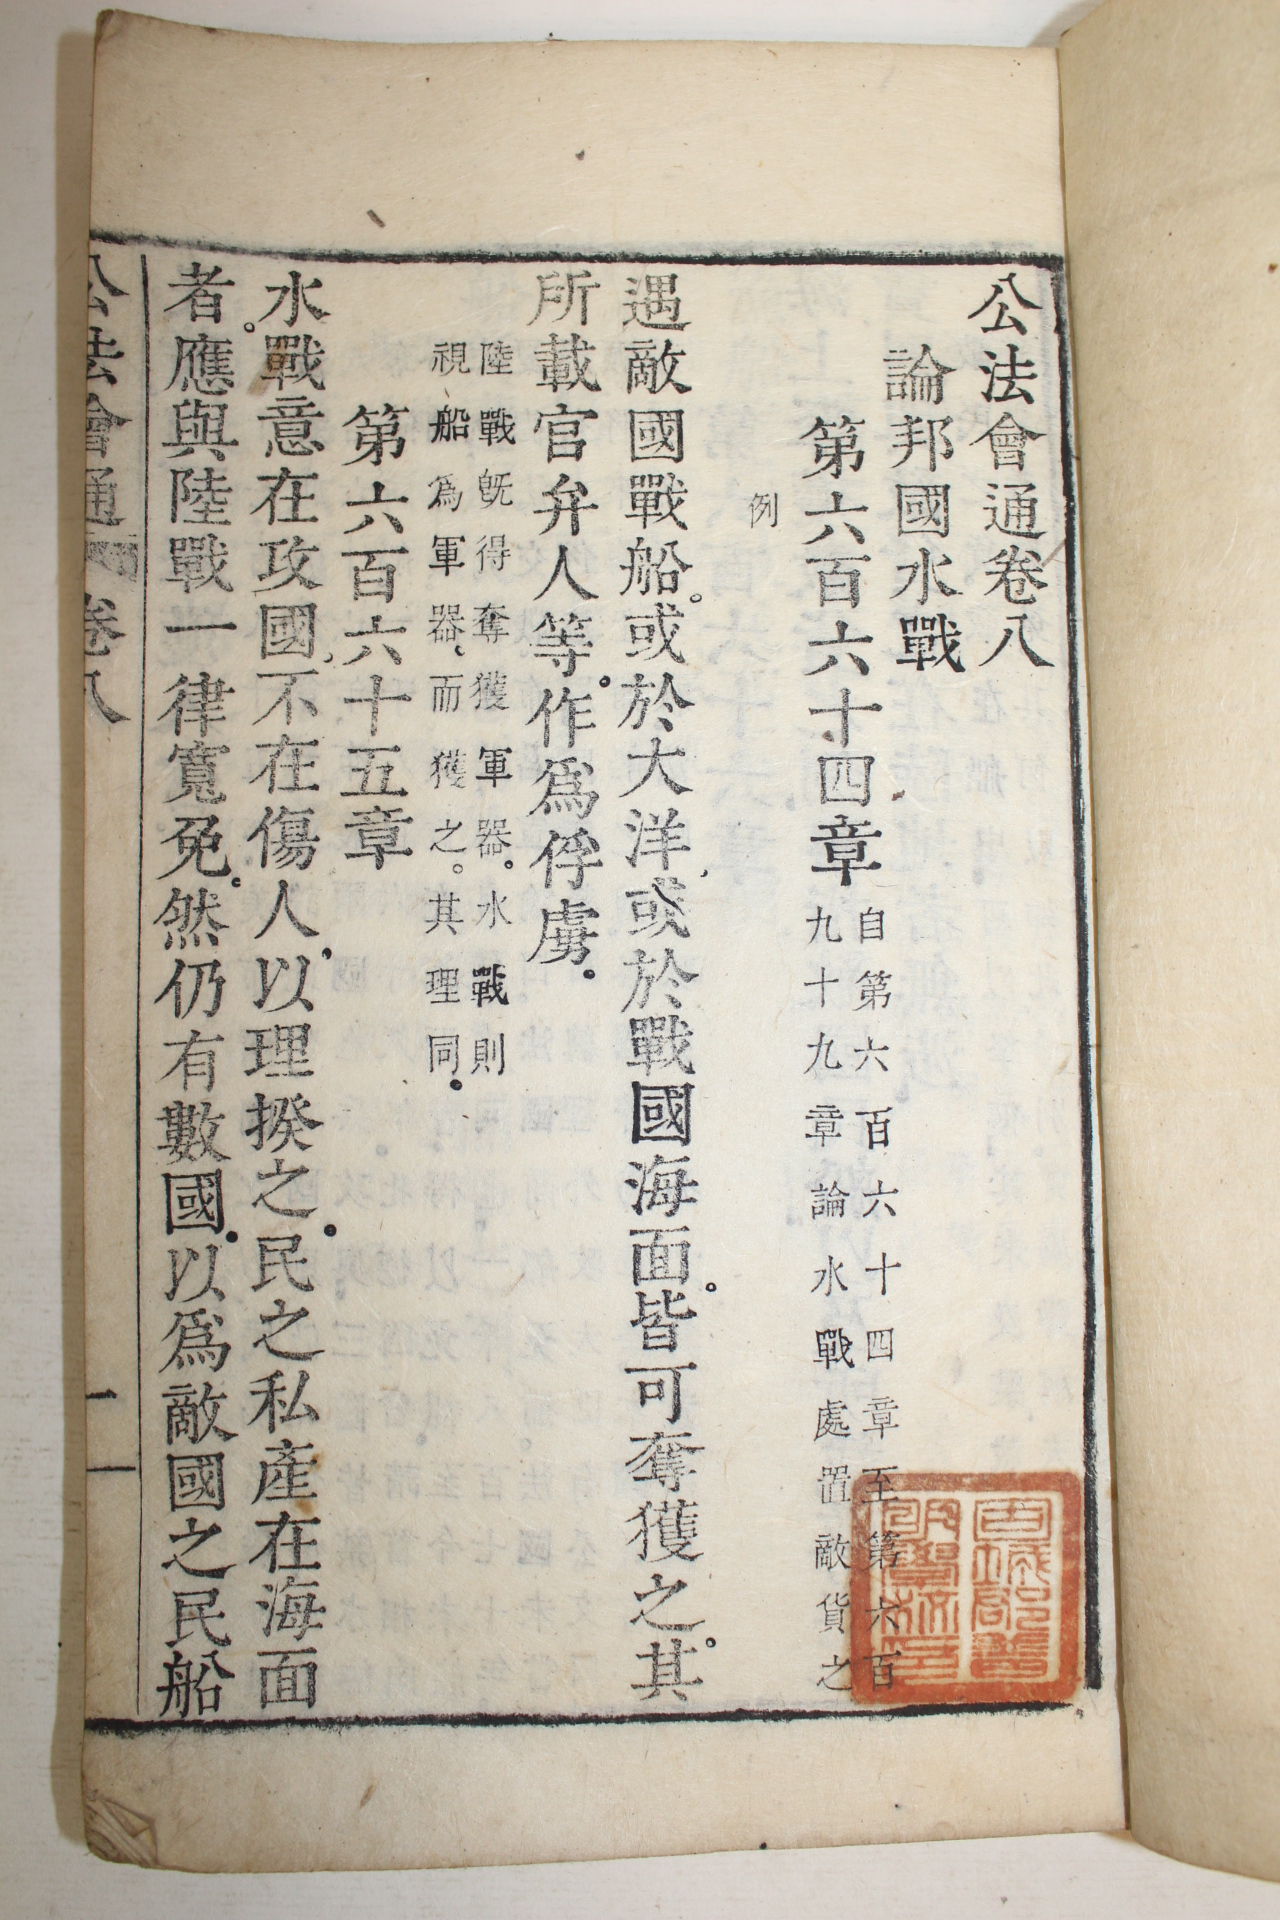 公法會通卷八
論邦國水戰
第六百六十四章
自第六百六十四章至第六百
九十九章論水戰處置敵貨之
例
遇敵國戰船。或於大洋、或於戰國海面。皆可奪獲之。其
所載官弁人等。作爲俘虜。
陸戰旣得奪獲軍器。水戰則
視船爲軍器、而獲之。其理同。
第六百六十五章
水戰意在攻國、不在傷人、以理揆之。民之私產在海面
者。應與陸戰一律寬免。然仍有數國。以爲敵國之民船
公法會通 卷八